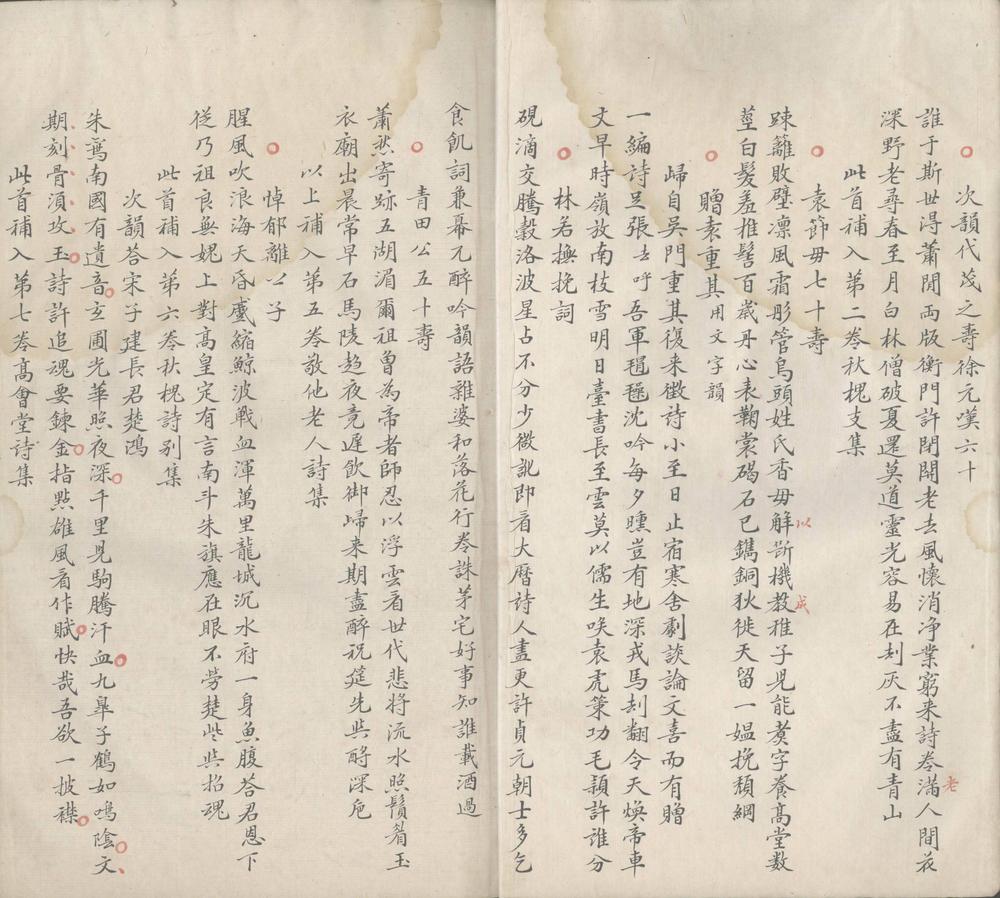 次韻代茂之壽徐元嘆六十
誰于斯世得蕭閒両版衡門許閉關老去風懷消净業窮來詩卷滿人間花
老
深野老尋春至月白林僧破夏還莫道靈光容易在刦灰不盡有青山
此首補入第二卷秋槐支集
袁節毋七十壽
踈籬敗壁凛風霜彤管烏頭姓氏香毋觧斵機教稚子児能煑字養髙堂数
以
成
莖白髪羞推髻百歳丹心表鞠裳碣石已鐫銅狄徙天留一媪挽頽綱
贈袁重其用文字韻
歸自吳門重其復来徴詩小至日止宿寒舍劇談論文喜而有贈
一編詩足張吾軍沈吟每夕曛豈有地深戎馬刦翻令天煥帝車
文早時嶺放南枝雪明日臺書長至雲莫以儒生唉袁虎䇿功毛頴許誰分
林若撫挽詞
硯滴交騰縠洛波星占不分少微訛即看大暦詩人盡更許貞元朝士多乞
食飢詞兼幕元醉吟韻語雜婆和落花行卷誅茅宅好事知誰載酒過
青田公五十壽
蕭然寄跡五湖湄爾祖曽為帝者師忍以浮雲看世代悲將流水照鬚眉玉
衣廟出晨常早石馬陵趨夜竟遅飲御歸来期盡醉祝筵先與酹深巵
以上補入第五卷敬他老人詩集
悼郁離公子
腥風吹浪海天昏鼇縮鯨波戰血渾萬里龍城沉水府一身魚腹荅君恩下
從乃祖良無媿上對髙皇定有言南斗朱旗應在眼不勞楚些與招魂
此首補入第六卷秋槐詩别集
次韻荅宋子建長君楚鴻
朱鳥南國有遺音玄圃光華照夜深千里児駒騰汗血九皋子鶴如鳴陰文
期刻骨湏攻玉詩許追魂要鍊金指點雄風看作賦快哉吾欲一披襟
此首補入第七卷髙會堂詩集